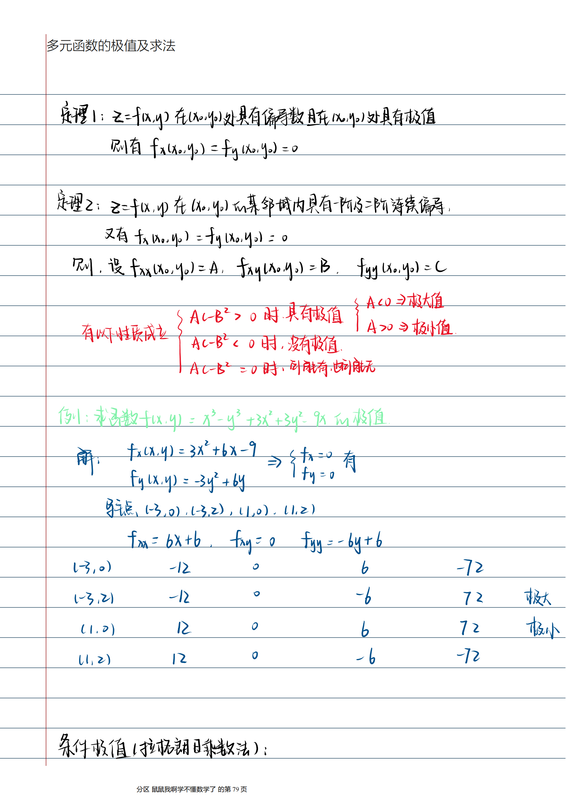 多元函数的极值及求法
定理1: z=f(x,y) 在(x₀,y₀)处具有偏导数且在(x₀,y₀)处具有极值
则有 fx(x₀,y₀)=fy(x₀,y₀)=0
定理2: z=f(x,y) 在(x₀,y₀)的某邻域内具有一阶及二阶连续偏导,
又有 fx(x₀,y₀)=fy(x₀,y₀)=0
则,设 fxx(x₀,y₀)=A, fxy(x₀,y₀)=B, fyy(x₀,y₀)=C
有以下性质成立 { AC-B²>0 时,具有极值 { A<0 ⇒ 极大值
A>0 ⇒ 极小值
AC-B²<0 时,没有极值
AC-B²=0 时,可能有也可能无
例1: 求函数 f(x,y)=x³-y³+3x²+3y²-9x 的极值
解: fx(x,y)=3x²+6x-9 ⇒ { fx=0 有
fy(x,y)=-3y²+6y fy=0
驻点,(-3,0),(-3,2),(1,0),(1,2)
fxx=6x+6, fxy=0 fyy=-6y+6
(-3,0) -12 0 6 -72
(-3,2) -12 0 -6 72 极大
(1,0) 12 0 6 72 极小
(1,2) 12 0 -6 -72
条件极值(拉格朗日乘数法):
分区 鼠鼠我啊学不懂数学了 的第 79 页